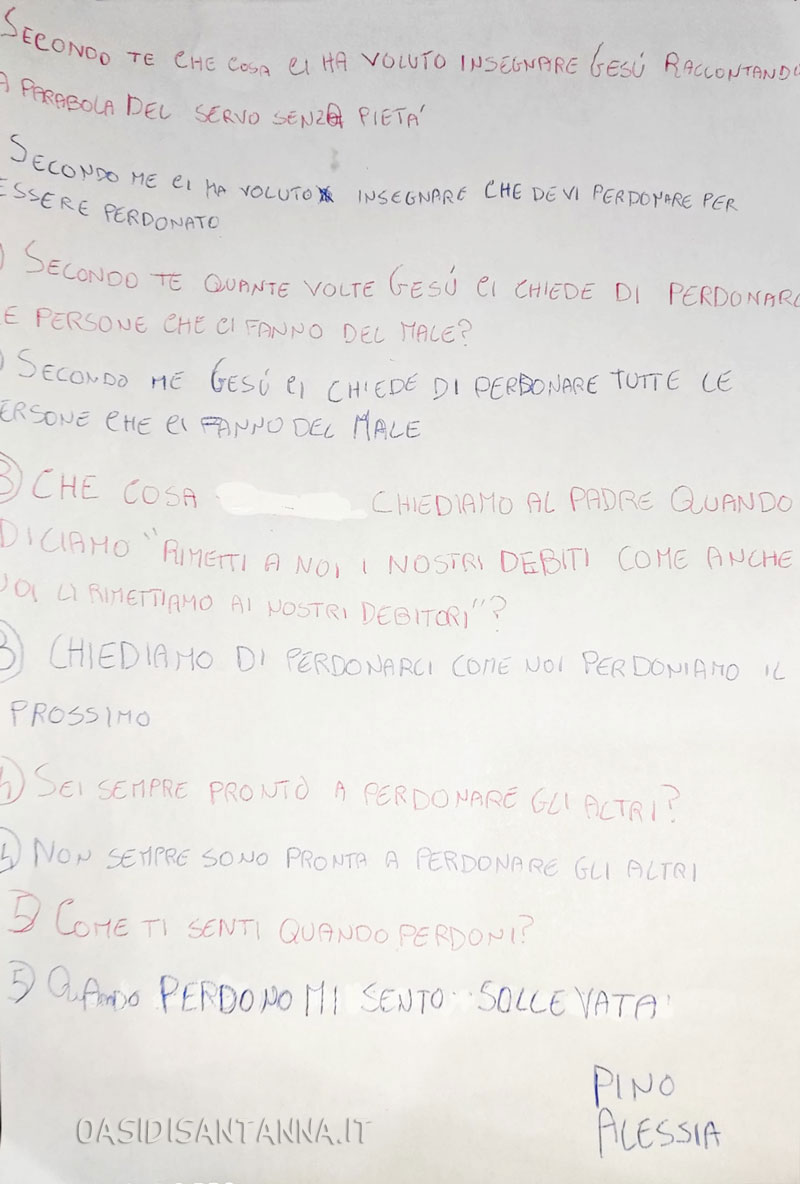 SECONDO TE CHE COSA CI HA VOLUTO INSEGNARE GESÚ RACCONTANDO
A PARABOLA DEL SERVO SENZA PIETA'
SECONDO ME CI HA VOLUTO INSEGNARE CHE DEVI PERDONARE PER
ESSERE PERDONATO
) SECONDO TE QUANTE VOLTE GESÚ CI CHIEDE DI PERDONARE
E PERSONE CHE CI FANNO DEL MALE?
) SECONDO ME GESÚ CI CHIEDE DI PERDONARE TUTTE LE
ERSONE CHE CI FANNO DEL MALE
3) CHE COSA CHIEDIAMO AL PADRE QUANDO
DICIAMO "RIMETTI A NOI I NOSTRI DEBITI COME ANCHE
NOI LI RIMETTIAMO AI NOSTRI DEBITORI"?
3) CHIEDIAMO DI PERDONARCI COME NOI PERDONIAMO IL
PROSSIMO
4) SEI SEMPRE PRONTO A PERDONARE GLI ALTRI?
4) NON SEMPRE SONO PRONTA A PERDONARE GLI ALTRI
5) COME TI SENTI QUANDO PERDONI?
5) QUANDO PERDONO MI SENTO SOLLEVATA
PINO
ALESSIA
OASIDISANTANNA.IT